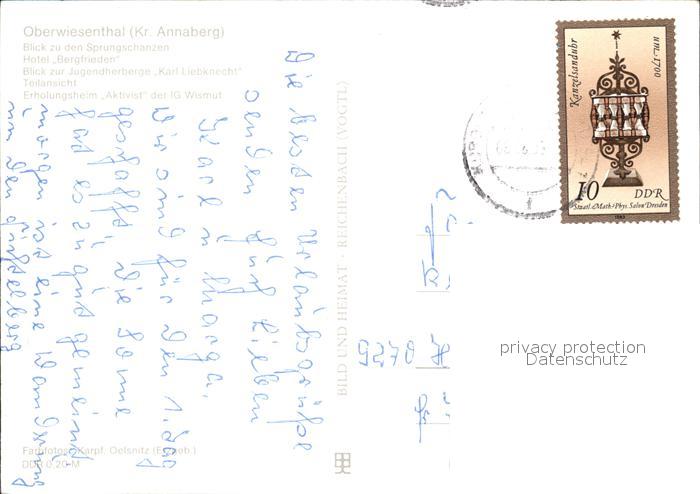 Oberwiesenthal (Kr. Annaberg)
Blick zu den Sprungschanzen
Hotel „Bergfrieden"
Blick zur Jugendherberge „Karl Liebknecht"
Teilansicht
Erholungsheim „Aktivist" der IG Wismut
Die besten Urlaubsgrüße
senden Fünf Lieben
Karl u. Marga.
Wir sind für den 1. Tag
geschafft, die Sonne
hat es zu gut gemeint
morgen ist eine Wanderung
um den Fichtelberg
Farbfotos: Karpf, Oelsnitz (Erzgeb.)
DDR 0,20 M
BILD UND HEIMAT · REICHENBACH (VOGTL)
Kanzelsanduhr
um 1700
10 DDR
Staatl. Math.-Phys. Salon Dresden
1983
9270
privacy protection
Datenschutz